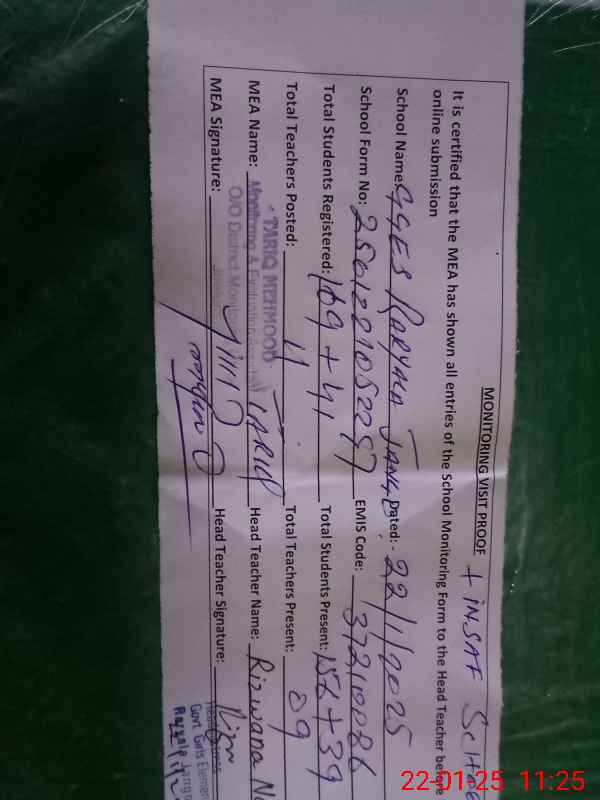 MONITORING VISIT PROOF + INSAF
It is certified that the MEA has shown all entries of the School Monitoring Form to the Head Teacher before
online submission
School Name: GGES RARYALA Dated: - 22/1/2025
School Form No: EMIS Code: 37210086
Total Students Registered: 169 + 41 Total Students Present: 156 + 39
Total Teachers Posted: 11 Total Teachers Present: 09
MEA Name: TARIQ Head Teacher Name: Rizwana
TARIQ MEHMOOD
Monitoring & Evaluation
O/O District
MEA Signature: Head Teacher Signature:
Govt Girls
22-01-25 11:25